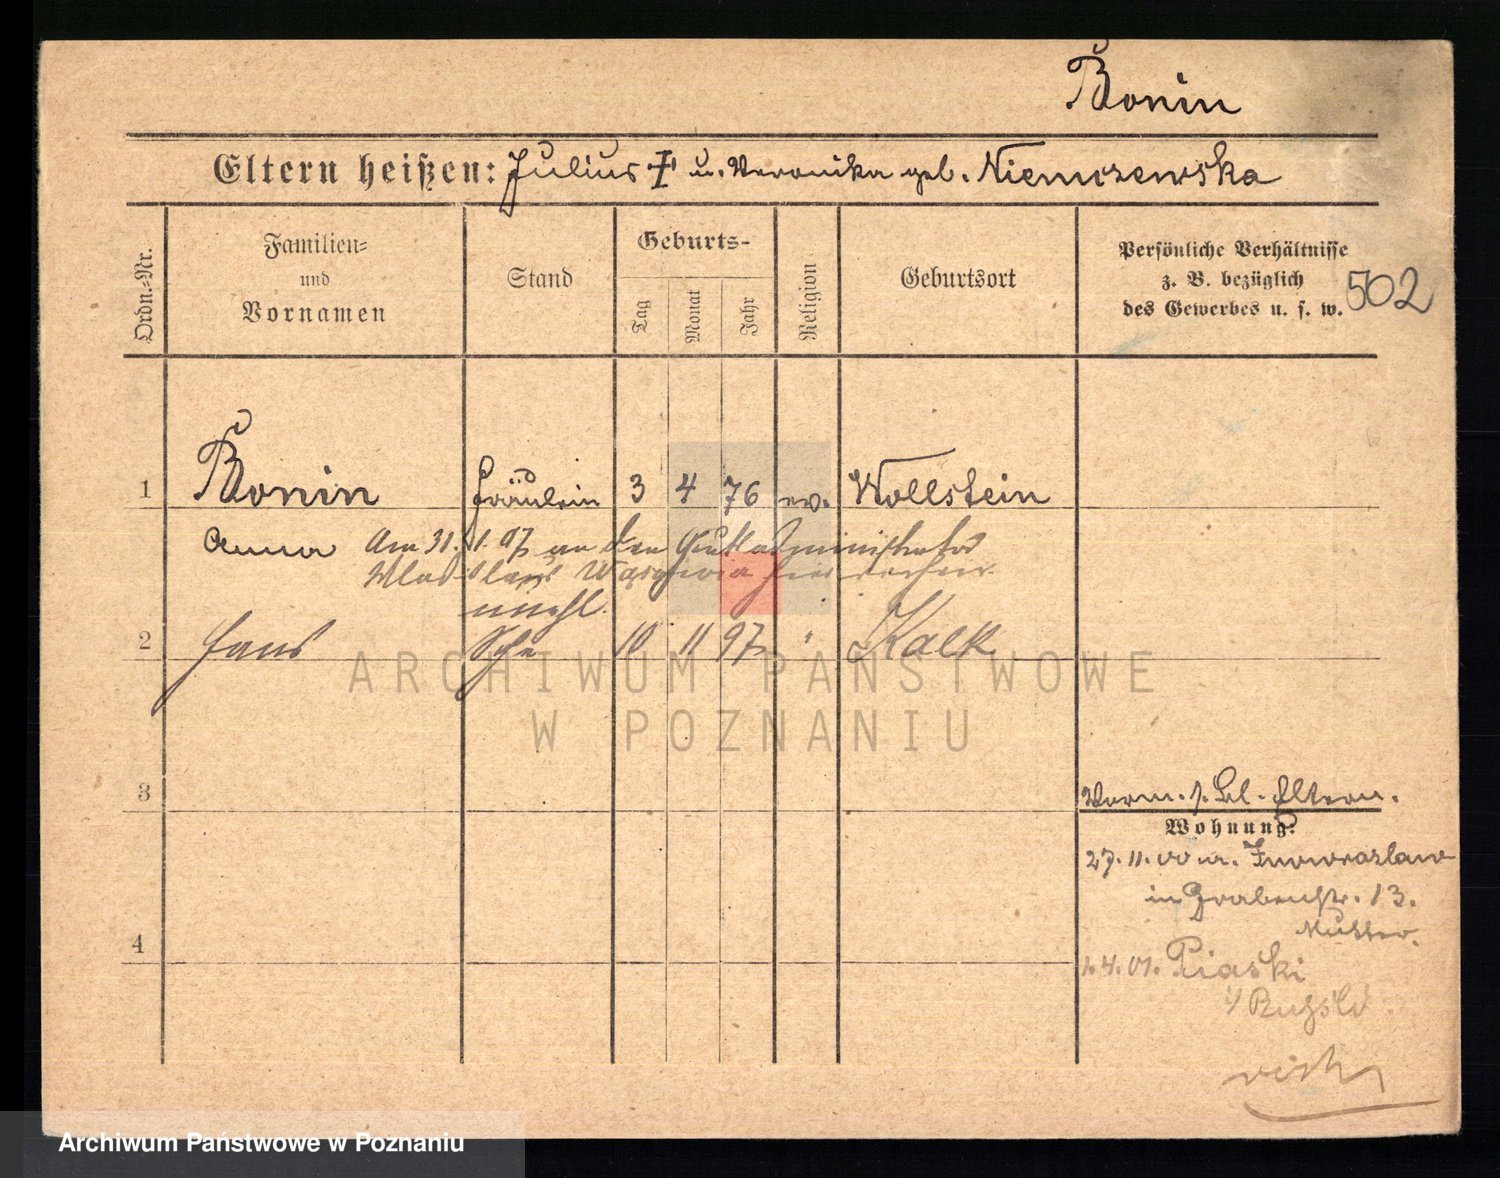 Bonin
Eltern heißen: Julius † u. Veronika geb. Niemczewska
Ordn.-Nr.
Familien-
und
Vornamen
Stand
Geburts-
Tag
Monat
Jahr
Religion
Geburtsort
Persönliche Verhältnisse
z. B. bezüglich
des Gewerbes u. s. w.
502
1 Bonin Fräulein 3 4 76 ev. Wollstein
Anna Am 31. 1. 97 an den Gutsadministrator
unehl.
2 Hans 10 11 97 " Kalk
ARCHIWUM PAŃSTWOWE
W POZNANIU
3
Verm. s. Bl. Eltern.
Wohnung:
27. 11. 00 n. Inowrazlaw
in Grabenstr. 13.
Mutter.
4
1. 4. 01. Piaski
Archiwum Państwowe w Poznaniu